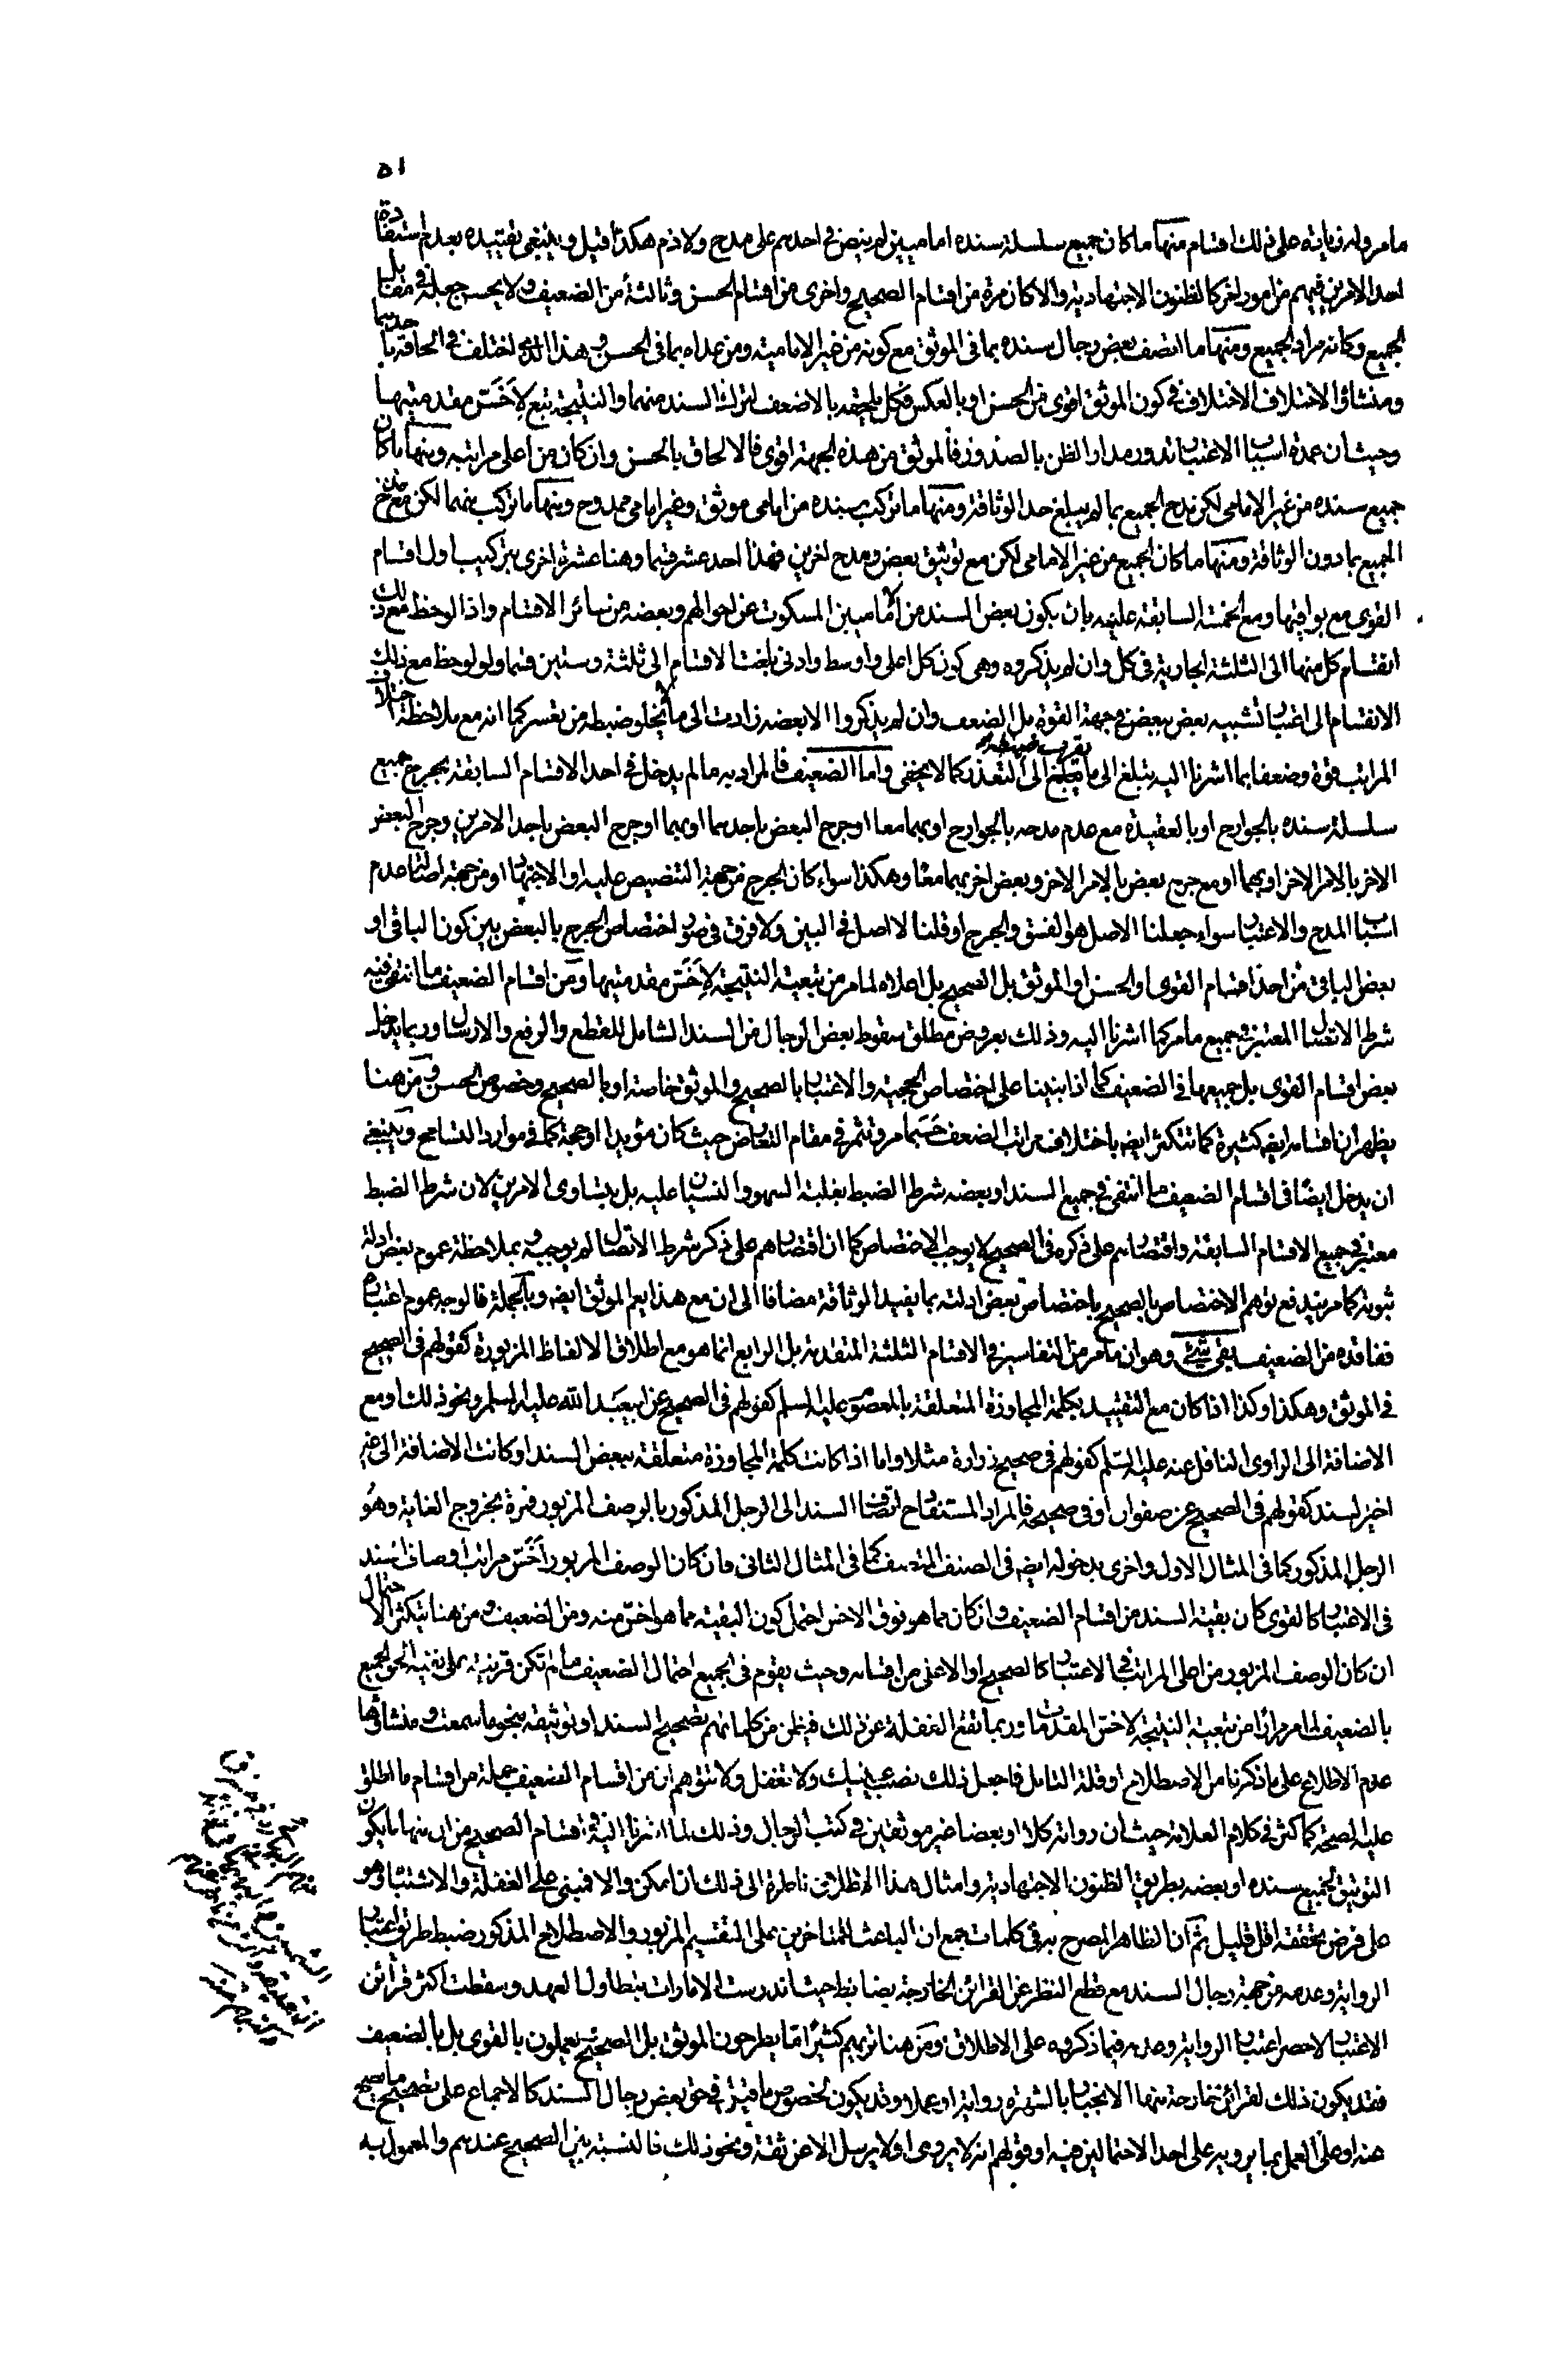 ٥١
ما مر وله زيادة على ذلك اقسام منها ما كان جميع سلسلة سنده اماميين لم ينص في احدهم على مدح ولا ذم هكذا قيل وينبغي تقييده بعدم استفادة
احد الامرين فيهم من امور اخر كالظنون الاجتهادية والا كان مرة من اقسام الصحيح واخرى من اقسام الحسن وثالثة من الضعيف ولا يحسن جعله في مقابل
الجميع وكانه مراد الجميع ومنها ما اتصف بعض رجال سنده بما في الموثق مع كونه من غير الامامية ومن عداه بما في الحسن وهذا الذي اختلف في الحاقه بايهما
ومنشأ الاختلاف الاختلاف في كون الموثق اقوى من الحسن او بالعكس فكل يلحقه بالاضعف لتركب السند منهما والنتيجة تتبع لأخس مقدمتيها
وحيث ان عمدة اسباب الاعتبار تدور مدار الظن بالصدور فالموثق من هذه الجهة اقوى فالالحاق بالحسن وان كان من اعلى مراتبه ومنها ما كان
جميع سنده من غير الامامي لكن مدح الجميع بما لم يبلغ حد الوثاقة ومنها ما تركب سنده من امامي موثق وغير امامي ممدوح ومنها ما تركب منهما لكن مع مدح
الجميع بما دون الوثاقة ومنها ما كان الجميع من غير الامامي لكن مع توثيق بعض ومدح اخرين فهذا احد عشر قسما وهنا عشرة اخرى بتركيب اول اقسام
القوى مع بواقيها ومع الخمسة السابقة عليه بان يكون بعض السند من الاماميين المسكوت عن احوالهم وبعضه من سائر الاقسام واذا لوحظ مع ذلك
انقسام كل منها الى الثلثة الجارية في كل وان لم يذكروه وهي كون كل اعلى واوسط وادنى بلغت الاقسام الى ثلثة وستين قسما ولو لوحظ مع ذلك
الانقسام الى اعتبار تشبيه بعض ببعض في جهة القوة بل الضعف وان لم يذكروا الا بعضه زادت الى ما لا يخلو ضبطه من تعسر كما انه مع ملاحظة اختلاف
المراتب قوة وضعفا بما اشرنا اليه يبلغ الى ما يقرب ضبطه الى التعذر كما لا يخفى واما الضعيف فالمراد به ما لم يدخل في احد الاقسام السابقة بجرح جميع
سلسلة سنده بالجوارح او بالعقيدة مع عدم مدحه بالجوارح او بهما معا او جرح البعض باحدهما او بهما او جرح البعض باحد الامرين وجرح البعض
الاخر بالامر الاخر او بهما او مع جرح بعض بالامر الاخر وبعض اخر بهما معا وهكذا سواء كان الجرح من جهة التنصيص عليه او الاجتهاد او من جهة اصالة عدم
اسباب المدح والاعتبار سواء جعلنا الاصل هو الفسق والجرح او قلنا لا اصل في البين ولا فرق في صورة اختصاص الجرح بالبعض بين كون الباقي او
بعض الباقي من احد اقسام القوى او الحسن او الموثق بل الصحيح بل اعلاه لما مر من تبعية النتيجة لأخس مقدمتيها ومن اقسام الضعيف ما انتفى فيه
شرط الاتصال المعتبر في جميع ما مر كما اشرنا اليه وذلك بعروض مطلق سقوط بعض الرجال من السند الشامل للقطع والرفع والارسال وربما يدخل
بعض اقسام القوى بل جميعها في الضعيف كما اذا بنينا على اختصاص الحجية والاعتبار بالصحيح والموثق خاصة او بالصحيح وخصوص الحسن ومن هنا
يظهر ان اقسامه ايضه كثيرة كما تتكثر ايضه باختلاف مراتب الضعف حسبما مر وتثمر في مقام التعارض حيث كان مؤيدا او حجة كما في موارد التسامح وينبغي
ان يدخل ايضا في اقسام الضعيف ما انتفى في جميع السند او بعضه شرط الضبط بغلبة السهو والنسيان عليه بل بتساوى الامرين لان شرط الضبط
معتبر في جميع الاقسام السابقة واقتصارهم على ذكره في الصحيح لا يوجب الاختصاص كما ان اقتصارهم على ذكر شرط الاتصال لم يوجبه وبملاحظة عموم بعض ادلة
ثبوته كما مر يندفع توهم الاختصاص بالصحيح باختصاص بعض ادلته بما يفيد الوثاقة مضافا الى ان مع هذا يعم الموثق ايضه وبالجملة فالوجه عموم اعتباره
ففاقده من الضعيف بقي شئ وهو ان ما مر من التفاسير في الاقسام الثلثة المتقدمة بل الرابع انما هو مع اطلاق الالفاظ المزبورة كقولهم في الصحيح
في الموثق وهكذا وكذا اذا كان مع التقييد بكلمة المجاوزة المتعلقة بالمعصوم عليه السلم كقولهم في الصحيح عن ابيعبد الله عليه السلم ونحو ذلك او مع
الاضافة الى الراوى الناقل عنه عليه السلم كقولهم في صحيح زرارة مثلا واما اذا كانت كلمة المجاوزة متعلقة ببعض السند او كانت الاضافة الى غير
اخير السند كقولهم في الصحيح عن صفوان او في صحيحه فالمراد المستفاد ح اتصاف السند الى الرجل المذكور بالوصف المزبور فمرة بخروج الغاية وهو
الرجل المذكور كما في المثال الاول واخرى بدخوله ايضه في الصنف المتصف كما في المثال الثاني فان كان الوصف المزبور أخس مراتب اوصاف السند
في الاعتبار كالقوى كان بقية السند من اقسام الضعيف وان كان مما هو فوق الاخس احتمل كون البقية مما هو اخس منه ومن الضعيف ومن هنا يتكثر الاحتمال
ان كان الوصف المزبور من اعلى المراتب في الاعتبار كالصحيح او الاعلى من اقسامه وحيث يقوم في الجميع احتمال الضعيف ما لم تكن قرينة على نفيه الحق الجميع
بالضعيف لما مر مرارا من تبعية النتيجة لاخس المقدمات وربما تقع الغفلة عن ذلك فيظن من كلماتهم تصحيح السند او توثيقه بنحو ما سمعت ومنشأها
عدم الاطلاع على ما ذكرنا من الاصطلاح او قلة التامل فاجعل ذلك نصب عينيك ولا تغفل ولا تتوهم ان من اقسام الضعيف جملة من اقسام ما اطلق
عليه الصحة كما كثر في كلام العلامة حيث ان رواته كلا او بعضا غير موثقين في كتب الرجال وذلك لما اشرنا اليه في اقسام الصحيح من ان منها ما يكون
التوثيق لجميع سنده او بعضه بطريق الظنون الاجتهادية وامثال هذا الاطلاق ناظرة الى ذلك ان امكن والا فمبني على الغفلة والاشتباه وهو
على فرض تحققه اقل قليل ثم ان الظاهر المصرح به في كلمات جمع ان الباعث للمتاخرين على التقسيم المزبور والاصطلاح المذكور ضبط طريق اعتبار
الرواية وعدمه من جهة رجال السند مع قطع النظر عن القرائن الخارجة بضابط حيث اندرست الامارات بتطاول العهد وسقطت اكثر قرائن
الاعتبار لا حصر اعتبار الرواية وعدمه فيما ذكروه على الاطلاق ومن هنا تريهم كثيرا ما يطرحون الموثق بل الصحيح ويعملون بالقوى بل بالضعيف
فقد يكون ذلك لقرائن خارجة منها الانجبار بالشهرة رواية او عملا وقد يكون لخصوص ما قيل في حق بعض رجال السند كالاجماع على تصحيح ما يصح
عنه او على العمل بما يرويه على احد الاحتمالين فيه او قولهم انه لا يروى او لا يرسل الا عن ثقة ونحو ذلك فالنسبة بين الصحيح عندهم والمعمول به